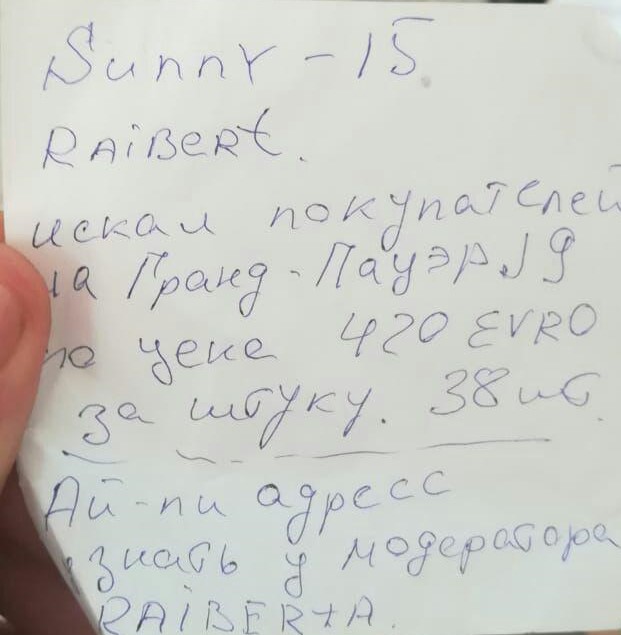 Sunny - 15
RAiBeRt.
искал покупателей
на Гранд-Пауэр J 9
по цене 420 EVRO
за штуку. 38 шт.
Ай-пи адресс
узнать у модератора
RAiBERtA.